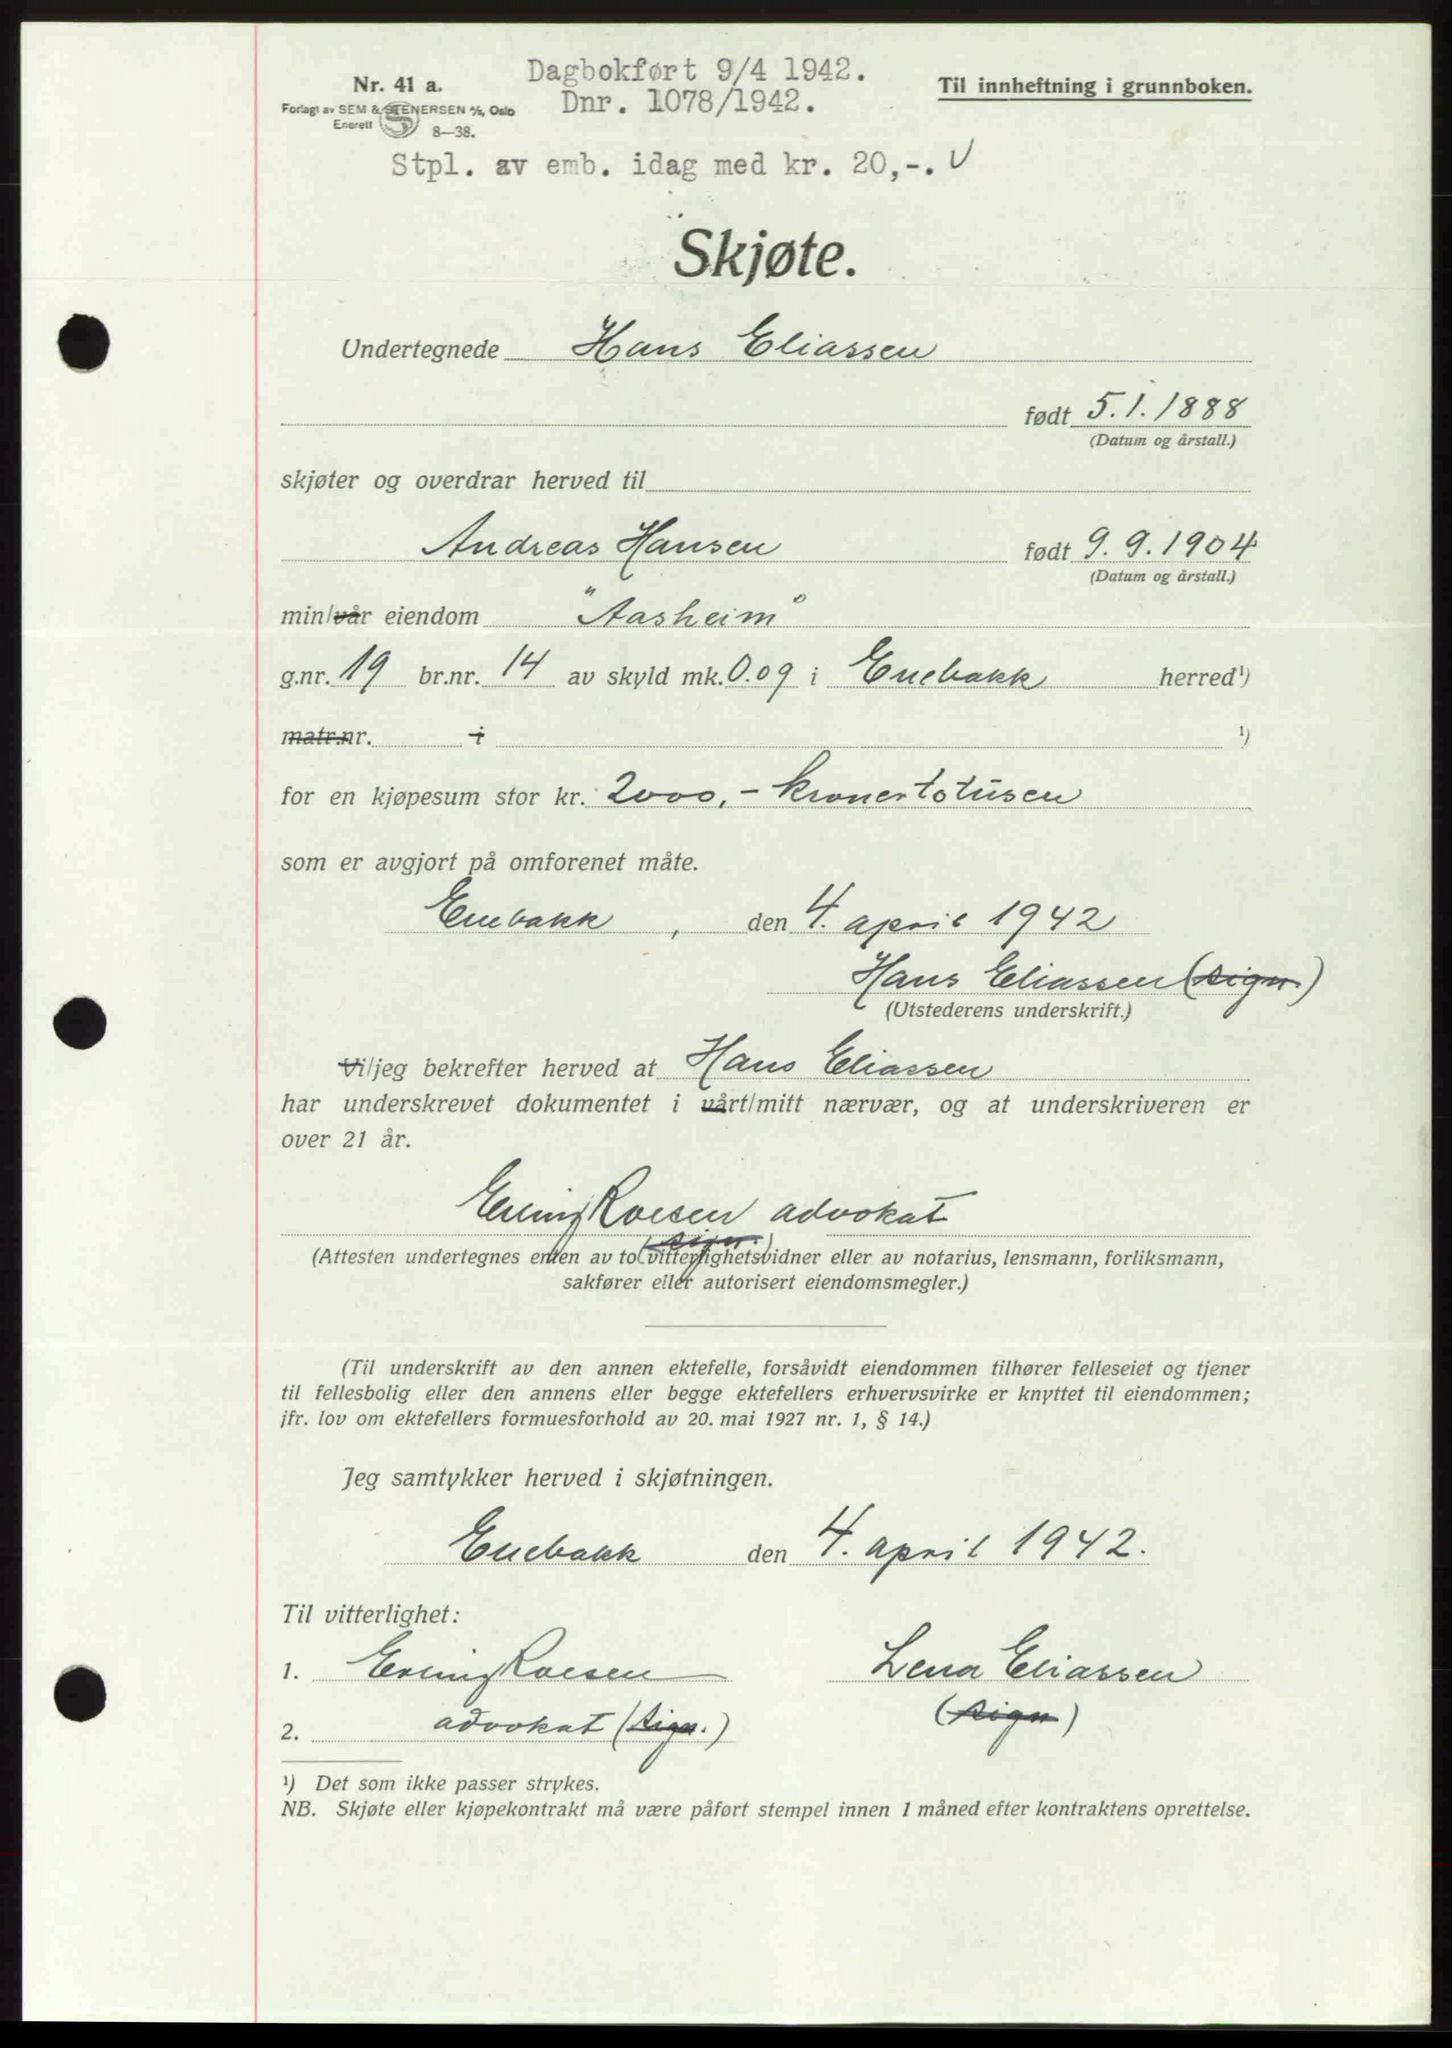 Nr. 41 a.
Forlagt av SEM & STENERSEN A/S, Oslo
Enerett 8—38.
Dagbokført 9/4 1942.
Dnr. 1078/1942.
Til innheftning i grunnboken.
Stpl. av emb. idag med kr. 20,-. V
Skjøte.
Undertegnede Hans Eliassen
født 5.1.1888
(Datum og årstall.)
skjøter og overdrar herved til
Andreas Hansen født 9.9.1904
(Datum og årstall.)
min/vår eiendom "Aasheim"
g.nr. 19 br.nr. 14 av skyld mk. 0.09 i Enebakk herred¹)
matr.nr. i ¹)
for en kjøpesum stor kr. 2000,- kronertotusen
som er avgjort på omforenet måte.
Enebakk, den 4. april 1942
Hans Eliassen (sign.)
(Utstederens underskrift.)
Vi/jeg bekrefter herved at Hans Eliassen
har underskrevet dokumentet i vårt/mitt nærvær, og at underskriveren er
over 21 år.
Erling Roesen advokat
(sign.)
(Attesten undertegnes enten av to vitterlighetsvidner eller av notarius, lensmann, forliksmann,
sakfører eller autorisert eiendomsmegler.)
(Til underskrift av den annen ektefelle, forsåvidt eiendommen tilhører felleseiet og tjener
til fellesbolig eller den annens eller begge ektefellers erhvervsvirke er knyttet til eiendommen;
jfr. lov om ektefellers formuesforhold av 20. mai 1927 nr. 1, § 14.)
Jeg samtykker herved i skjøtningen.
Enebakk den 4. april 1942.
Til vitterlighet:
1. Erling Roesen Lena Eliassen
2. advokat (sign.) (sign)
¹) Det som ikke passer strykes.
NB. Skjøte eller kjøpekontrakt må være påført stempel innen 1 måned efter kontraktens oprettelse.